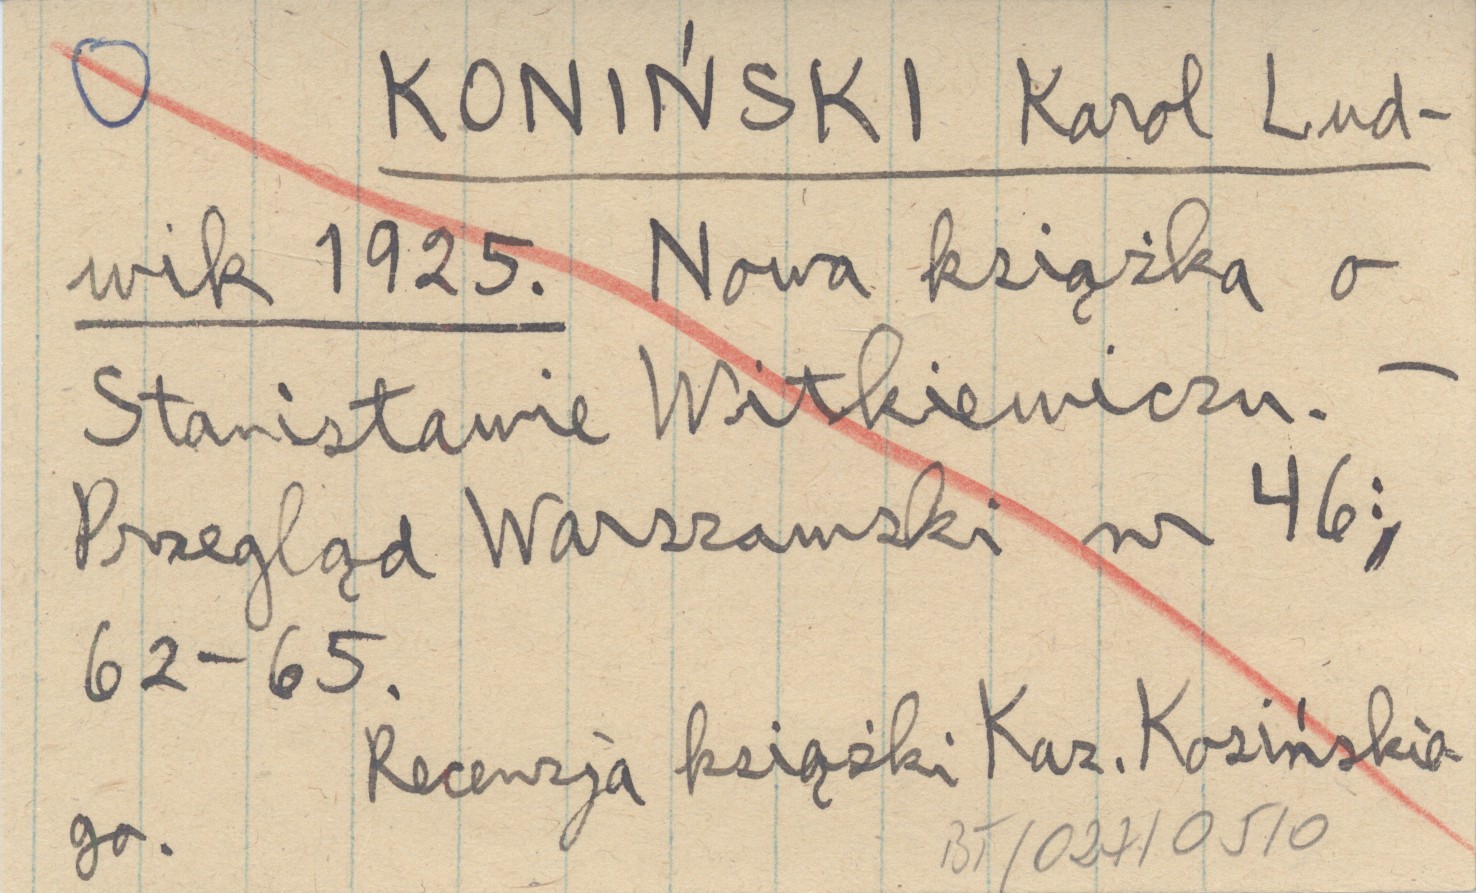 KONIŃSKI Karol Lud-
wik 1925. Nowa książka o
Stanisławie Witkiewiczu. –
Przegląd Warszawski nr 46;
62–65.
Recenzja książki Kaz. Kosińskie-
go.
BT/027/05/0